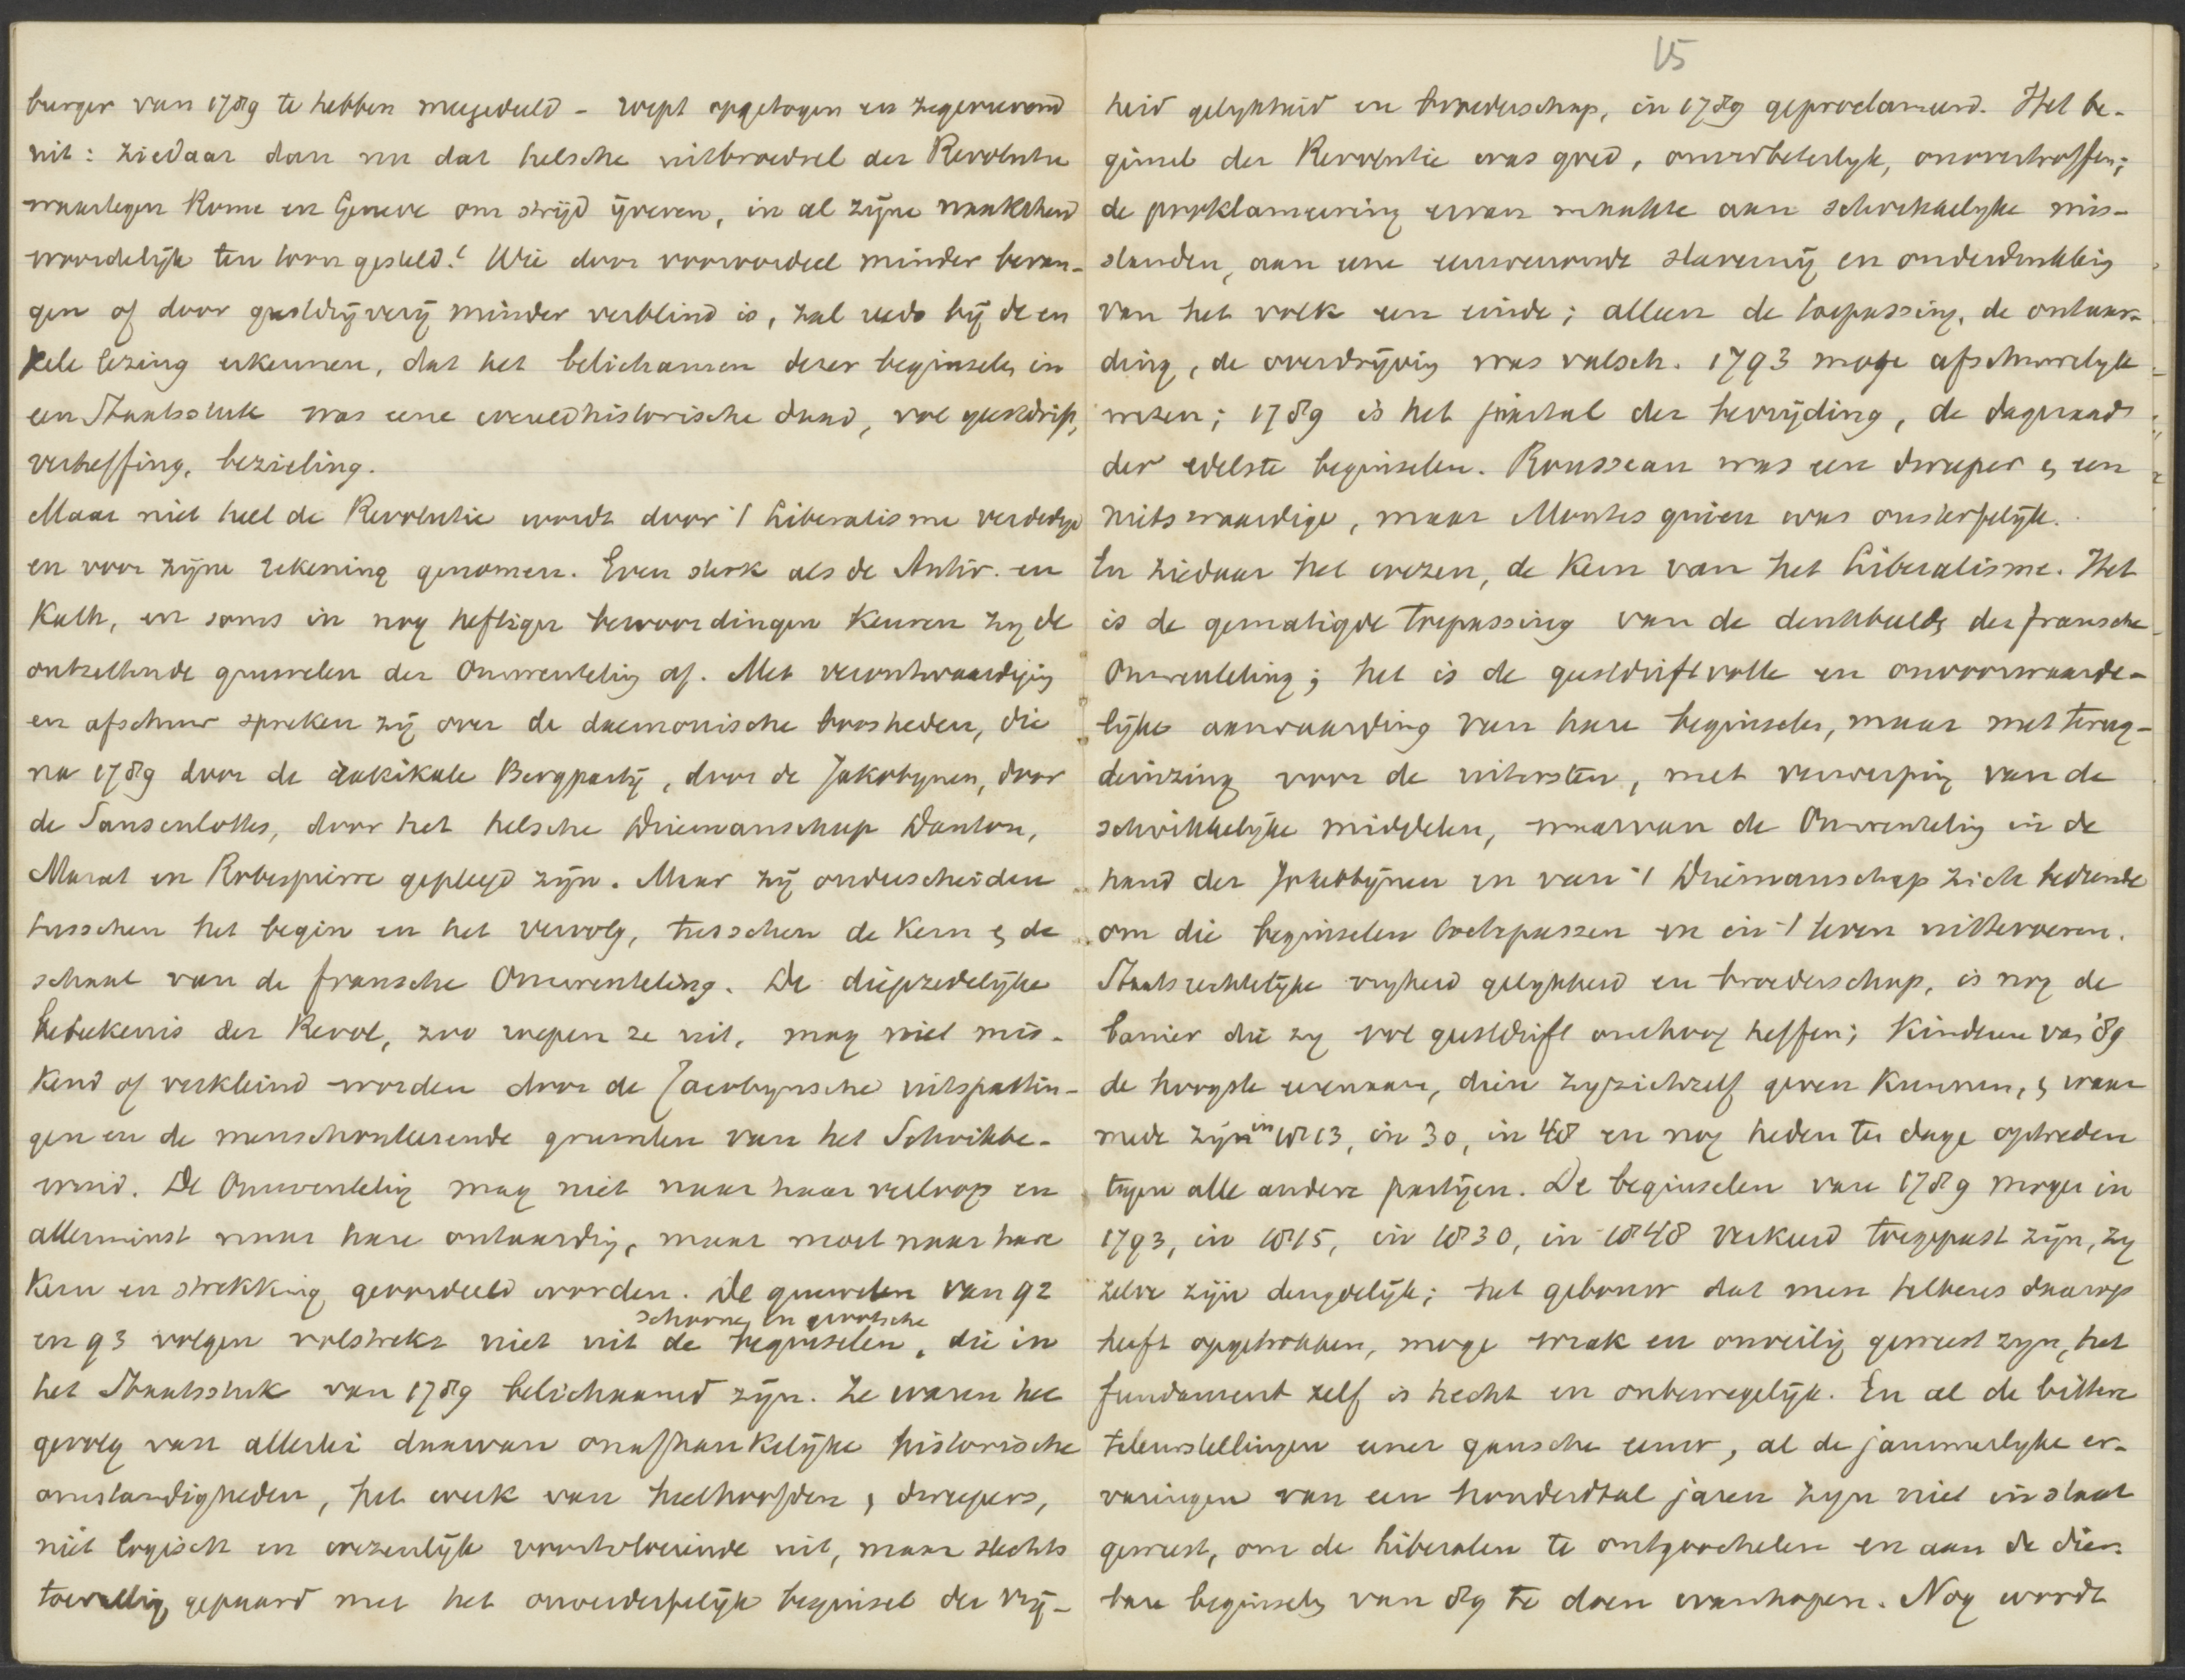 burger van 1789 te hebben meegedeeld - roept opgetogen en zegevierend
uit: ziedaar dan nu dat helsche uitbroedsel der Revolutie
waartegen Rome en Geneve om strijd ijveren, in al zijne naaktheid
woordelijk ten toon gesteld! Wie door vooroordeel minder bevan-
gen of door geestdrijverij minder verblind is, zal reeds bij de en
kele lezing erkennen, dat het belichamen dezer beginselen in
een Staatsstuk was eene wereldhistorische daad, vol geestdrift,
verheffing, bezieling.
Maar niet heel de Revolutie wordt door 't Liberalisme verdedigd
en voor zijne rekening genomen. Even sterk als de Antir. en
Kath, en soms in nog heftiger bewoordingen keuren zij de
ontzettende gruwelen der Omwenteling af. Met verontwaardiging
en afschuw spreken zij over de daemonische boosheden, die
na 1789 door de radikale Bergpartij, door de Jakobynen, door
de Sansculottes, door het helsche Driemanschap Danton,
Marat en Robespierre gepleegd zijn. Maar zij onderscheiden
tusschen het begin en het vervolg, tusschen de kern & de
schaal van de fransche Omwenteling. De diepzedelijke
beteekenis der Revol, zoo roepen ze uit, mag niet mis-
kend of verkleind worden door de Jacobynsche uitspattin-
gen en de menschonteerende gruwelen van het Schrikbe-
wind. De Omwenteling mag niet naar haar verloop en
allerminst naar hare ontaarding, maar moet naar hare
kern en strekking geoordeeld worden. De gruwelen van 92
schoone en grootsche
en 93 volgen volstrekt niet uit de beginselen, die in
het Staatsstuk van 1789 belichaamd zijn. Ze waren het
gevolg van allerlei daarvan onafhankelijke historische
omstandigheden, het werk van heethoofden & dweepers,
niet logisch en wezenlijk voortvloeiende uit, maar slechts
toevallig gepaard met het onverderfelijk beginsel der vrij-
15
heid gelykheid en broederschap, in 1789 geproclameerd. Het be-
ginsel der Revolutie was goed, onverbeterlyk, onovertroffen;
de proklameering ervan maakte aan schrikkelyke mis-
standen, aan eene eeuwenoude slavernij en onderdrukking
van het volk een einde; alleen de toepassing, de ontaar-
ding, de overdrijving was valsch. 1793 moge afschuwelyk
wezen; 1789 is het jaartal der bevrijding, de dageraad
der edelste beginselen. Rousseau was een dweeper & een
nietswaardige, maar Montesquieu was onsterfelijk.
En ziedaar het wezen, de kern van het Liberalisme. Het
is de gematigde toepassing van de denkbeelden der fransche
Omwenteling; het is de geestdriftvolle en onvoorwaarde-
lijke aanvaarding van hare beginselen, maar met terug-
deinzing voor de uitersten, met verwerping van de
schrikkelijke middelen, waarvan de Omwenteling in de
hand der Jakobijnen en van 't Driemanschap zich bediende
om die beginselen toetepassen en in 't leven uittevoeren.
Staatsrechtelijke vryheid gelykheid en broederschap, is nog de
banier die zy vol geestdrift omhoog heffen; Kinderen van '89
de hoogste eerenaam, dien zy zichzelf geven kunnen, & waar
mede zij in 1813, in 30, in 48 en nog heden ten dage optreden
tegen alle andere partijen. De beginselen van 1789 mogen in
1793, in 1815, in 1830, in 1848 verkeerd toegepast zijn, zy
zelve zijn deugdelijk; het gebouw dat men telkens daarop
heeft opgetrokken, moge wrak en onveilig geweest zyn, het
fundament zelf is hecht en onbewegelijk. En al de bittere
teleurstellingen eener gansche eeuw, al de jammerlyke er-
varingen van een honderdtal jaren zyn niet in staat
geweest, om de liberalen te ontgoochelen en aan de dier-
bare beginselen van 89 te doen wanhopen. Nog wordt